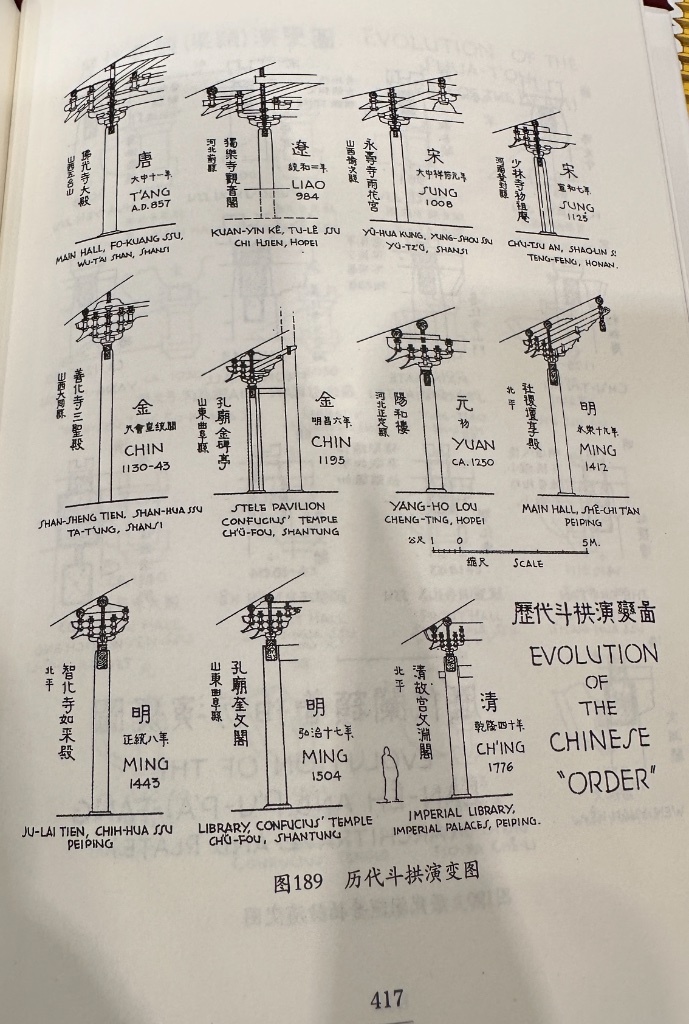 佛光寺大殿
山西五台山
唐
大中十一年
T'ANG
A.D.857
MAIN HALL, FO-KUANG SSU,
WU-T'AI SHAN, SHANSI
獨樂寺觀音閣
河北薊縣
遼
統和二年
LIAO
984
KUAN-YIN KÊ, TU-LÊ SSU
CHI HSIEN, HOPEI
永壽寺雨花宮
山西榆次縣
宋
大中祥符元年
SUNG
1008
YÜ-HUA KUNG, YUNG-SHOU SSU
YÜ-TZ'Ŭ, SHANSI
少林寺初祖庵
河南登封縣
宋
宣和七年
SUNG
1125
CH'U-TSU AN, SHAO-LIN S
TENG-FENG, HONAN.
善化寺三聖殿
山西大同縣
金
天會皇統間
CHIN
1130-43
SHAN-SHENG TIEN, SHAN-HUA SSU
TA-T'UNG, SHANSI
孔廟金碑亭
山東曲阜縣
金
明昌六年
CHIN
1195
STELE PAVILION
CONFUCIUS' TEMPLE
CH'Ü-FOU, SHANTUNG
陽和樓
河北正定縣
元
初
YUAN
CA. 1250
YANG-HO LOU
CHENG-TING, HOPEI
社稷壇享殿
北平
明
永樂十九年
MING
1412
MAIN HALL, SHÊ-CHI T'AN
PEIPING
公尺 1 0 5M.
縮尺 SCALE
智化寺如來殿
北平
明
正統八年
MING
1443
JU-LAI TIEN, CHIH-HUA SSU
PEIPING
孔廟奎文閣
山東曲阜縣
明
弘治十七年
MING
1504
LIBRARY, CONFUCIUS' TEMPLE
CH'Ü-FOU, SHANTUNG
清故宮文淵閣
北平
清
乾隆四十年
CH'ING
1776
IMPERIAL LIBRARY,
IMPERIAL PALACES, PEIPING.
歷代斗拱演變圖
EVOLUTION
OF
THE
CHINESE
"ORDER"
图189 历代斗拱演变图
417